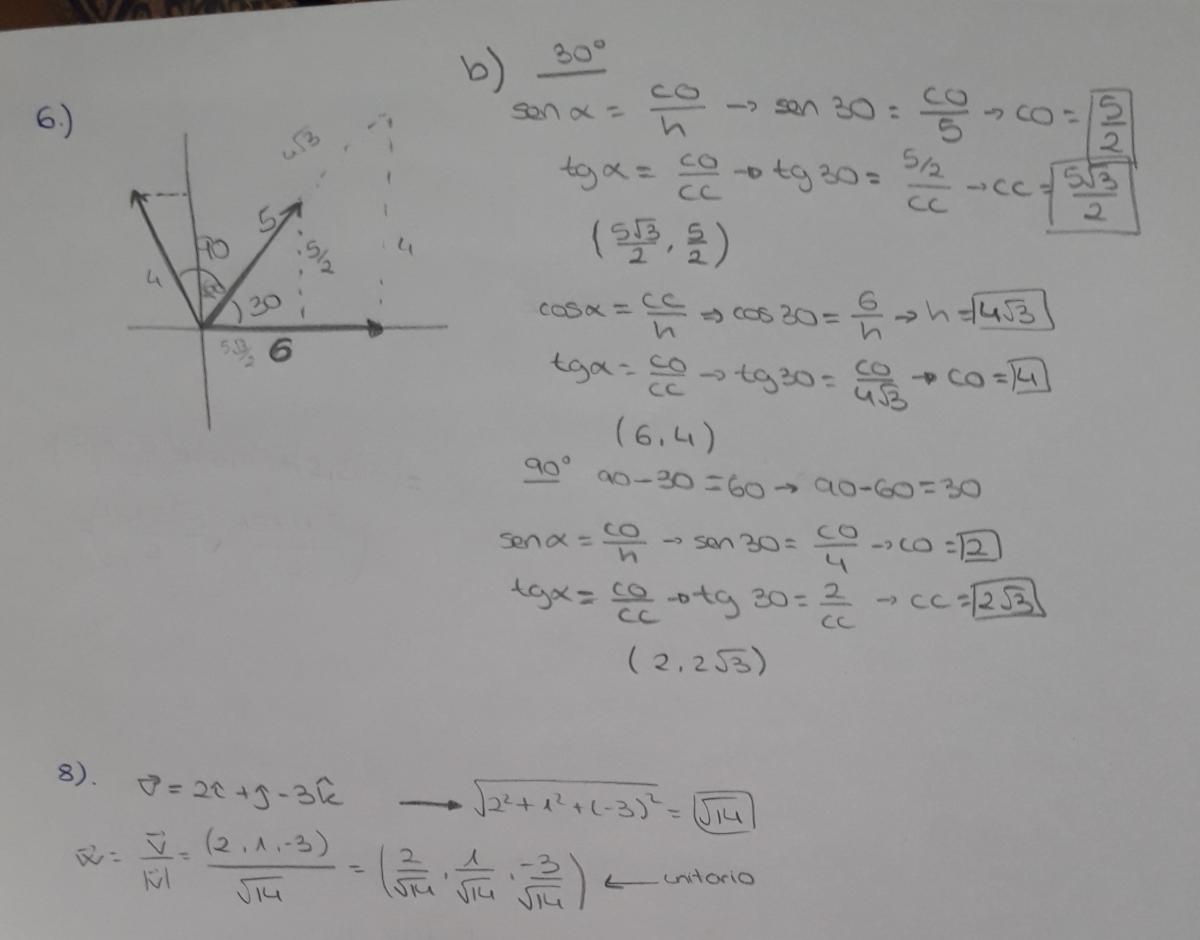 6.)
4√3
5
90
60
4
30
5/2
4
5√3/2
6
b) 30°
sen α = co/h → sen 30 = co/5 → co = 5/2
tg α = co/cc → tg 30 = 5/2/cc → cc = 5√3/2
(5√3/2, 5/2)
cos α = cc/h ⇒ cos 30 = 6/h → h = 4√3
tg α = co/cc → tg 30 = co/4√3 → co = 4
(6,4)
90° 90-30=60 → 90-60=30
sen α = co/h → sen 30 = co/4 → co = 2
tg α = co/cc → tg 30 = 2/cc → cc = 2√3
(2, 2√3)
8). v⃗ = 2î + ĵ - 3k̂ → √2²+1²+(-3)² = √14
= v⃗/|v⃗| = (2, 1, -3)/√14 = (2/√14, 1/√14, -3/√14) ← unitario